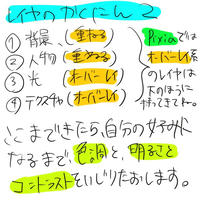 レイヤのかくにん2
① 背景 (重ねる)
② 人物 (重ねる)
③ 光 (オーバーレイ)
④ テクスチャ (オーバーレイ)
Pixiaでは
オーバーレイ系
のレイヤは
下のほうに
持ってきてネ。
ここまできたら、自分の好みに
なるまで、色調と、明るさと
コントラストをいじりたおします。